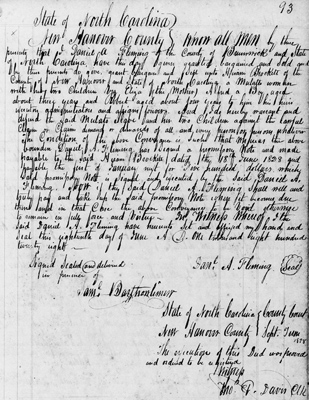 93
State of North Carolina
New Hanover County } Know all men by these
presents that I Daniel A Fleming of the County of Brunswick and State
of North Carolina, have this day given granted bargained and Sold and
by this presents do give, grant bargain and Sell unto Hiram Brockett of the
County of New Hanover and State of North Carolina a Mulatto woman
with her two Children by Eliza (the Mother) Alfred a Boy aged
about three years and Albert aged about four years to him his heirs
executors administrators and assigns forever. And I do hereby warrant and
defend the said Mulatto above and her two Children against the lawful
Claim or Claims demand or demands of all and every person or persons whatever
The Condition of the above Conveyance is Such that whereas the above
bounden Daniel A Fleming has executed a promissory Note and made
payable to the said Hiram Brockett dated the 18th June 1828 and
payable the first of January next for Five hundred dollars which
said promissory Note is signed and executed by the said Daniel A
Fleming. Now if the said Daniel A. Fleming Shall well and
truly pay and take up the said promissory Note when it become due
then and in that Case the above Conveyance to be void otherwise
to remain in full force and virtue. In Witness Whereof I the
said Daniel A. Fleming have hereunto Set and affixed my hand and
seal this eighteenth day of June A D. one thousand eight hundred
twenty eight
Signed Sealed and delivered
in presence of
Danl. A. Fleming (Seal)
Saml. Bartholomew
State of North Carolina } County Court
New Hanover County } Sept. Term
1828
The execution of this Deed was proved
and ordered to be registered
Witness
Thos. F. Davis Clk